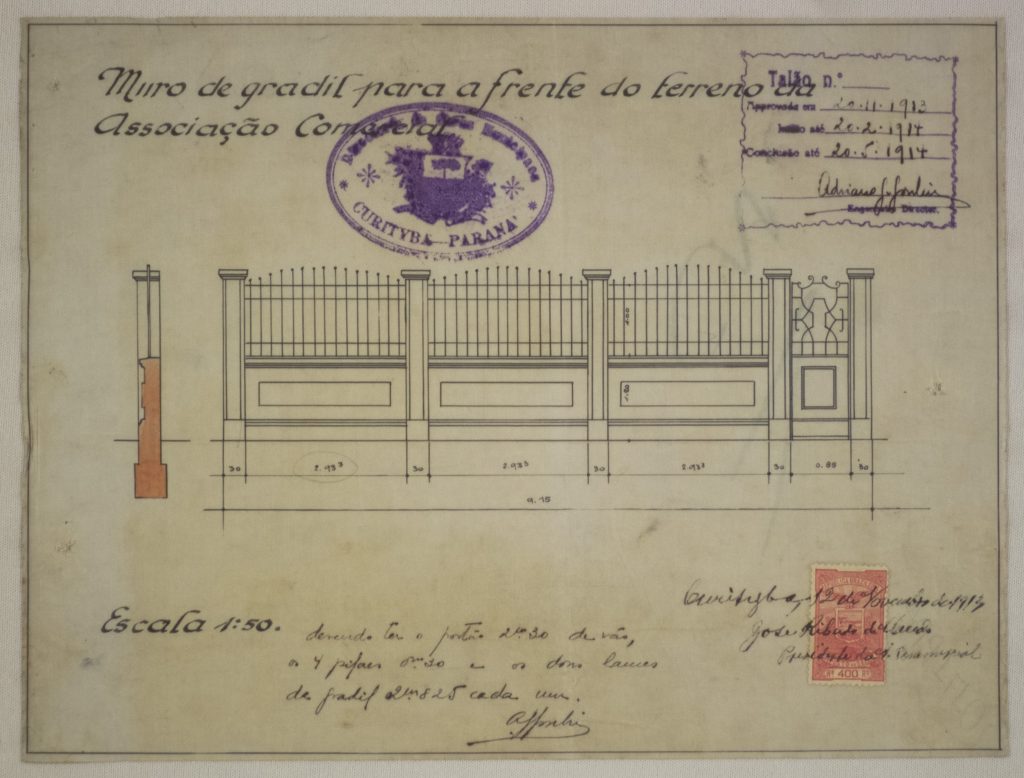 Muro de gradil para a frente do terreno da
Associação Comercial
Talão n.º
Approvada em 20.11.1913
Início até 20.2.1914
Conclusão até 20.5.1914
Engenheiro Director.
CURITYBA PARANÁ
1.00
1.80
30 2.933 30 2.933 30 2.933 30 0.85 30
9.15
Escala 1:50.
devendo ter o portão 2m.30 de vão,
os 4 pilares 0m.30 e os dous lances
de gradil 2m.825 cada um.
Curityba, 12 de Novembro de 1913
José
Presidente da
Rs 400 Rs